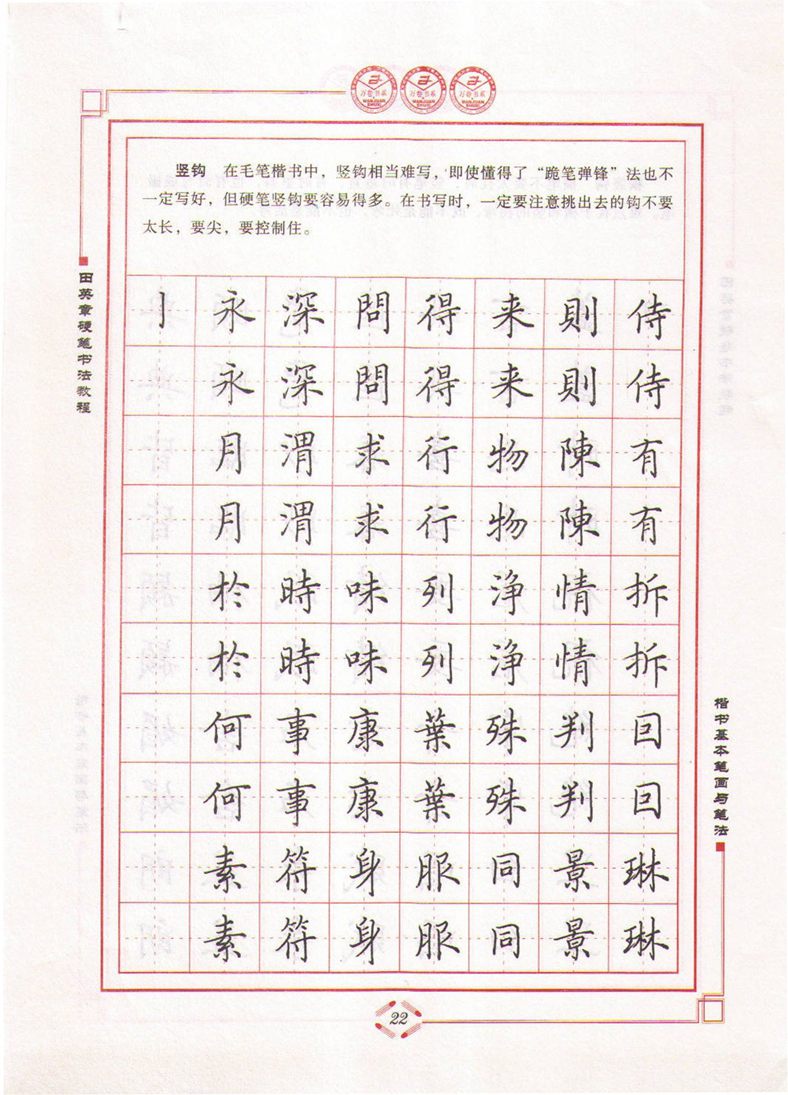 万卷书系 万卷书系 万卷书系
WANJUAN SHUXI WANJUAN SHUXI WANJUAN SHUXI
竖钩 在毛笔楷书中，竖钩相当难写，即使懂得了“跪笔弹锋”法也不
一定写好，但硬笔竖钩要容易得多。在书写时，一定要注意挑出去的钩不要
太长，要尖，要控制住。
田英章硬笔书法教程
亅 永 深 問 得 来 則 侍
永 深 問 得 来 則 侍
月 渭 求 行 物 陳 有
月 渭 求 行 物 陳 有
於 時 味 列 淨 情 拆
於 時 味 列 淨 情 拆
何 事 康 葉 殊 判 回
何 事 康 葉 殊 判 回
素 符 身 服 同 景 琳
素 符 身 服 同 景 琳
楷书基本笔画与笔法
22